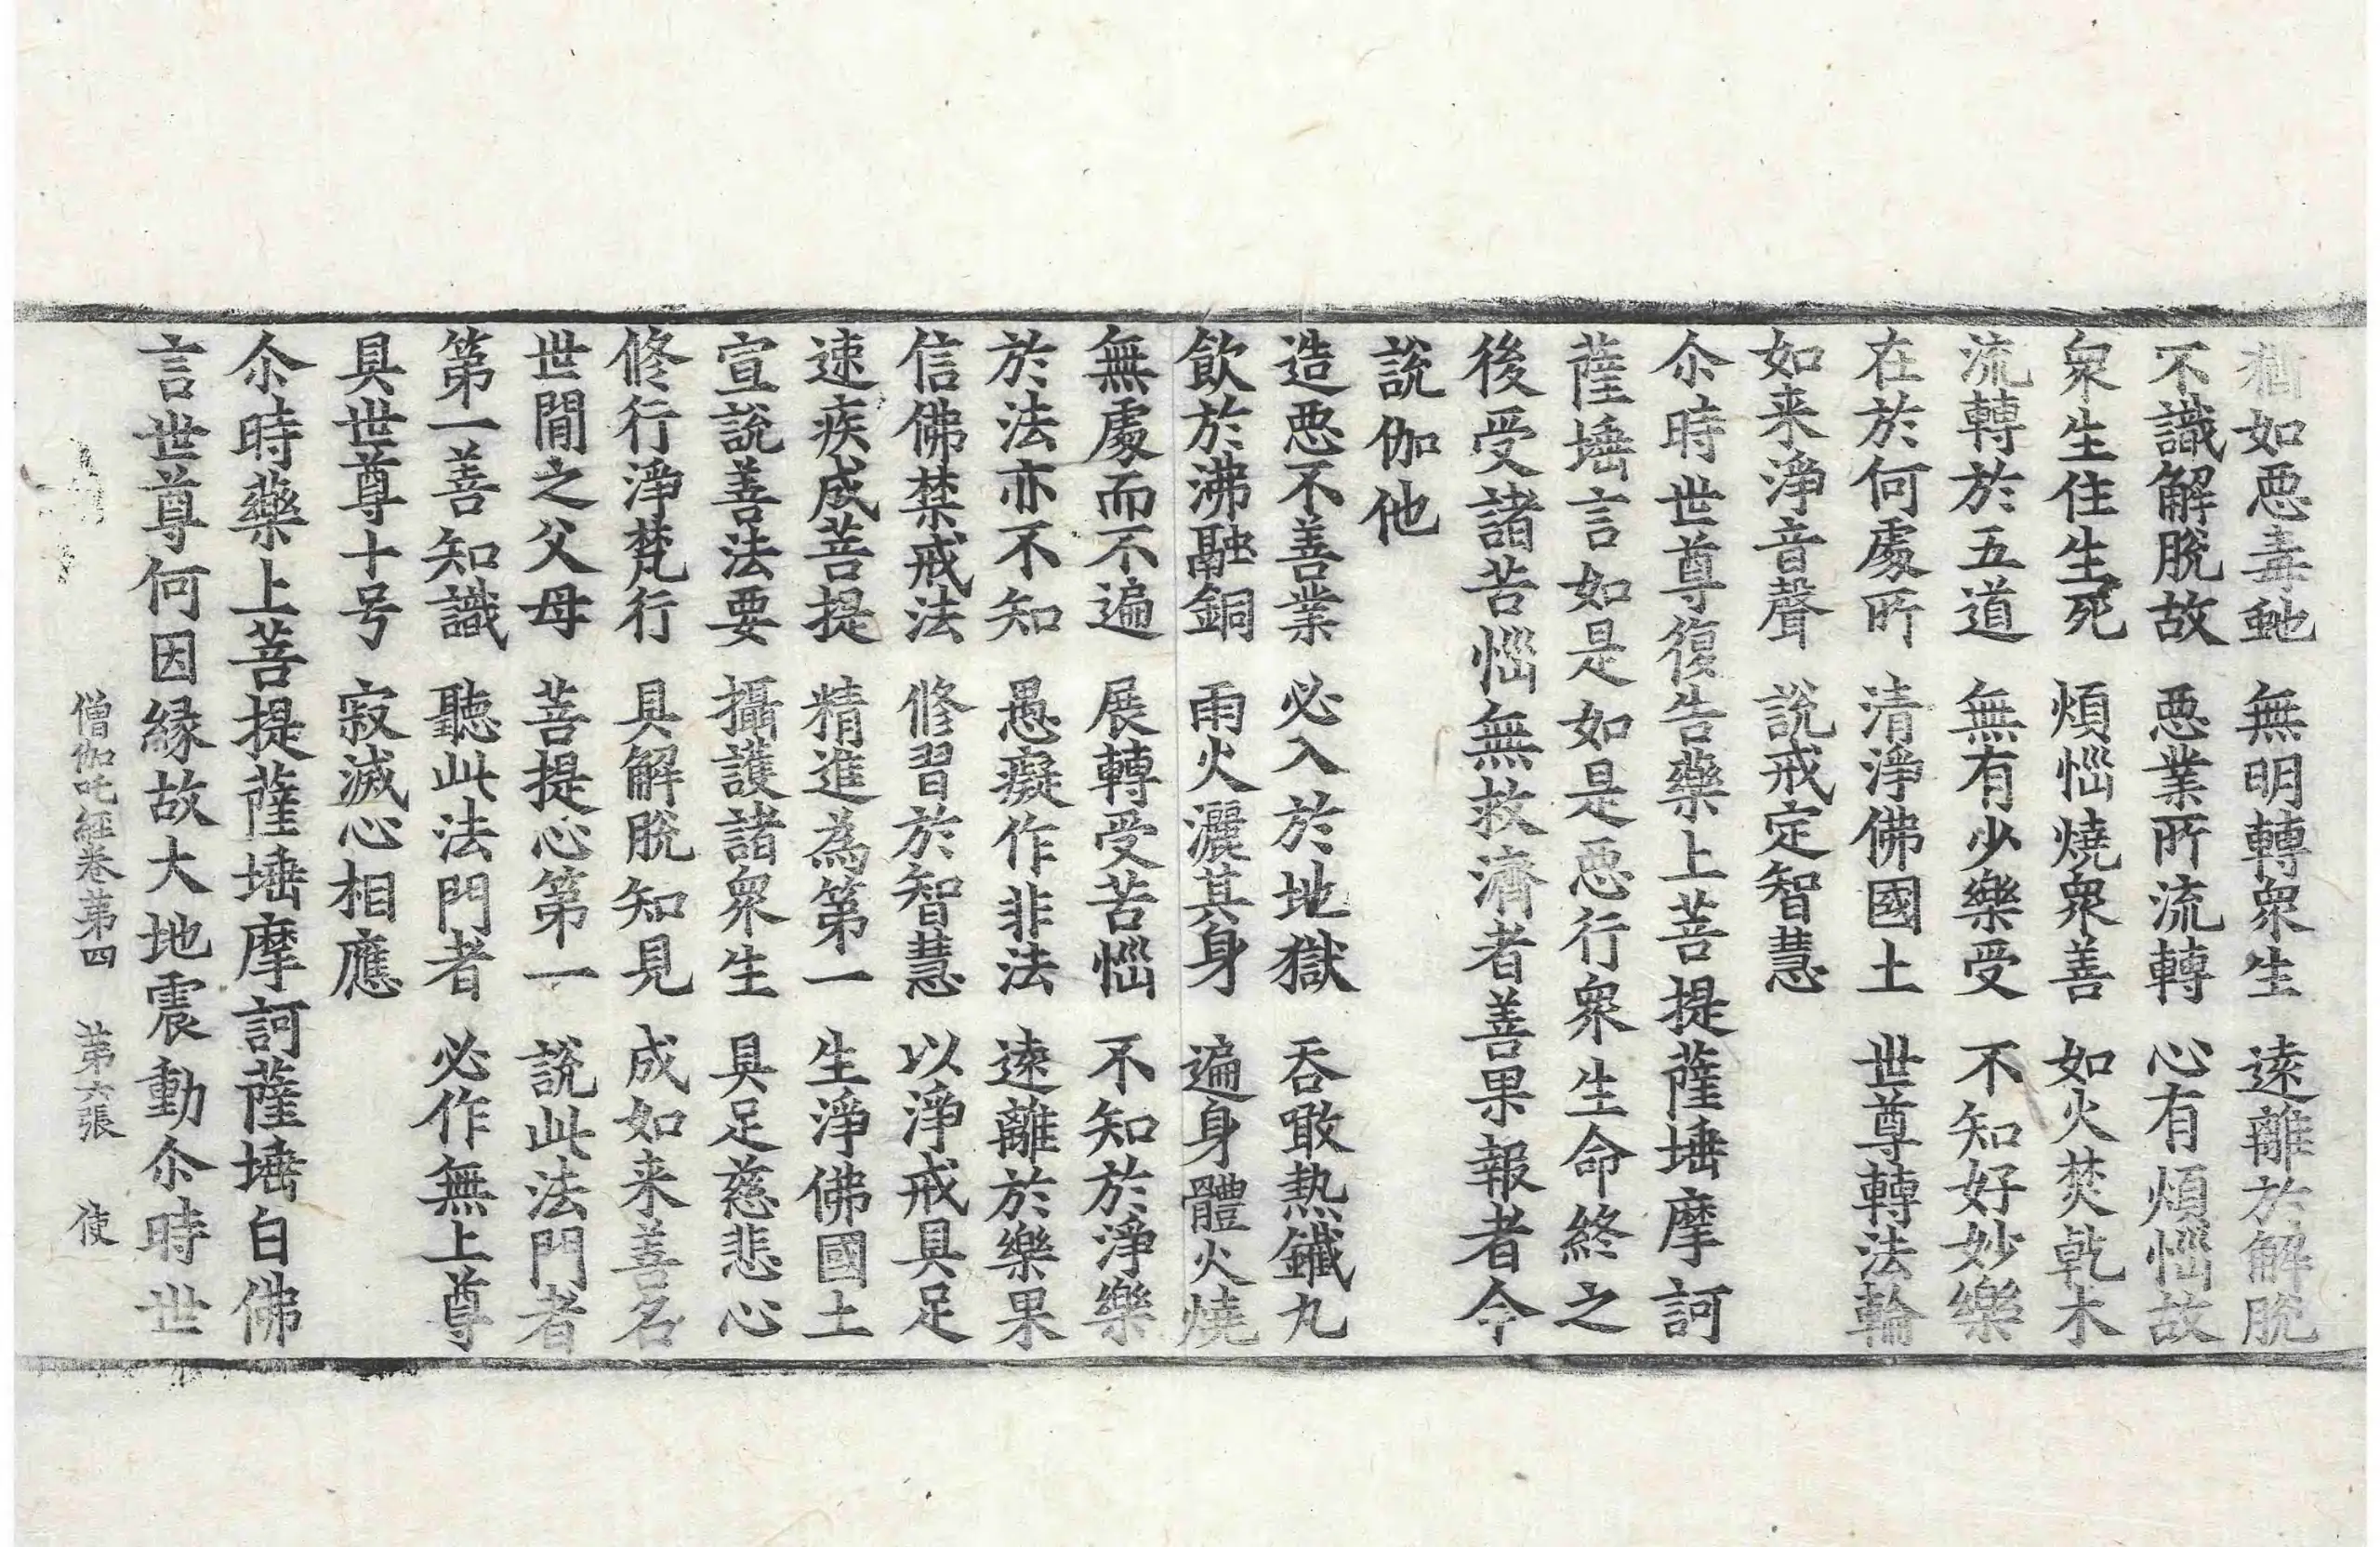 猶如惡毒虵　無明轉衆生　遠離於解脫
不識解脫故　惡業所流轉　心有煩惱故
衆生住生死　煩惱燒衆善　如火焚乾木
流轉於五道　無有少樂受　不知好妙樂
在於何處所　清淨佛國土　世尊轉法輪
如来淨音聲　說戒定智慧
尒時世尊復告藥上菩提薩埵摩訶
薩埵言如是如是惡行衆生命終之
後受諸苦惱無救濟者善果報者今
說伽他
造惡不善業　必入於地獄　吞噉熱鐵丸
飲於沸融銅　雨火灑其身　遍身體火燒
無處而不遍　展轉受苦惱　不知於淨樂
於法亦不知　愚癡作非法　遠離於樂果
信佛禁戒法　修習於智慧　以淨戒具足
速疾成菩提　精進為第一　生淨佛國土
宣說善法要　攝護諸衆生　具足慈悲心
修行淨梵行　具解脫知見　成如来善名
世間之父母　菩提心第一　說此法門者
第一善知識　聽此法門者　必作無上尊
具世尊十号　寂滅心相應
尒時藥上菩提薩埵摩訶薩埵白佛
言世尊何因緣故大地震動尒時世
僧伽吒經卷第四　第六張　使